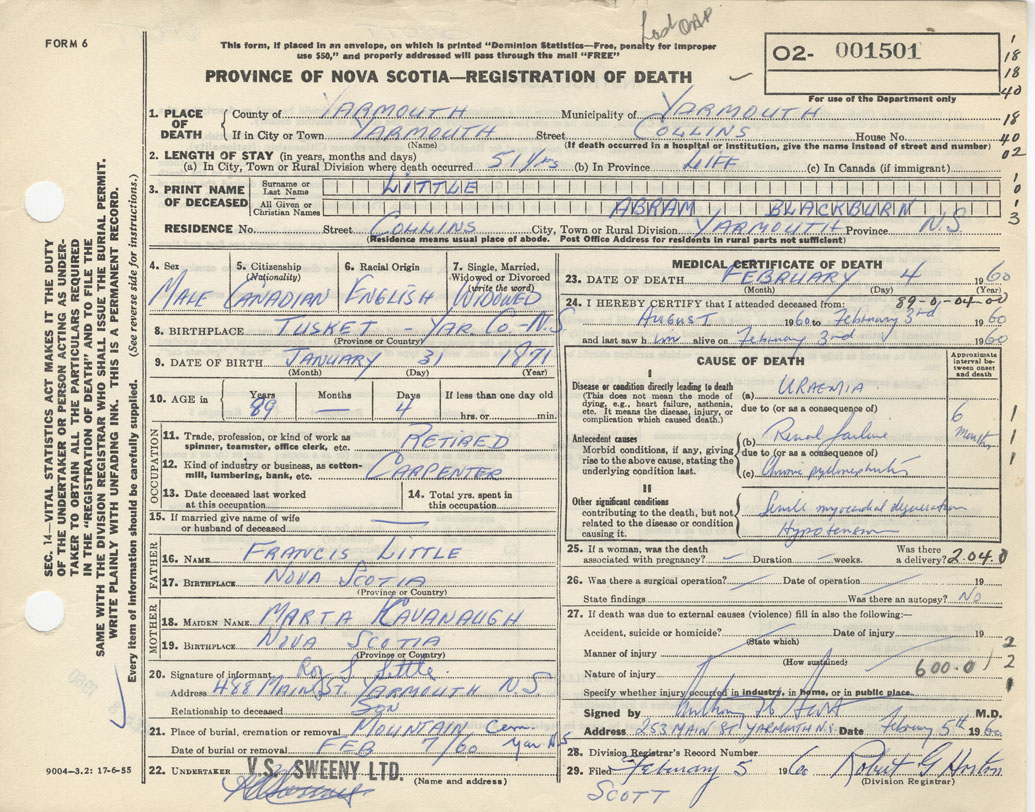 FORM 6
This form, if placed in an envelope, on which is printed "Dominion Statistics—Free, penalty for improper
use $50," and properly addressed will pass through the mail "FREE"
PROVINCE OF NOVA SCOTIA—REGISTRATION OF DEATH
O2- 001501
For use of the Department only
1. PLACE OF DEATH County of YARMOUTH Municipality of YARMOUTH
If in City or Town YARMOUTH Street COLLINS House No.
(Name) (If death occurred in a hospital or institution, give the name instead of street and number)
2. LENGTH OF STAY (in years, months and days)
(a) In City, Town or Rural Division where death occurred 51 Yrs (b) In Province LIFE (c) In Canada (if immigrant)
3. PRINT NAME OF DECEASED Surname or Last Name LITTLE
All Given or Christian Names ABRAM BLACKBURN
RESIDENCE No. Street COLLINS City, Town or Rural Division YARMOUTH Province N.S
(Residence means usual place of abode. Post Office Address for residents in rural parts not sufficient)
4. Sex MALE
5. Citizenship (Nationality) CANADIAN
6. Racial Origin ENGLISH
7. Single, Married, Widowed or Divorced (write the word) WIDOWED
8. BIRTHPLACE TUSKET - YAR CO-N.S
(Province or Country)
9. DATE OF BIRTH JANUARY 31 1871
(Month) (Day) (Year)
10. AGE in Years 89 Months — Days 4 If less than one day old hrs. or min.
OCCUPATION
11. Trade, profession, or kind of work as spinner, teamster, office clerk, etc. RETIRED
12. Kind of industry or business, as cotton-mill, lumbering, bank, etc. CARPENTER
13. Date deceased last worked at this occupation
14. Total yrs. spent in this occupation
15. If married give name of wife or husband of deceased —
FATHER
16. NAME FRANCIS LITTLE
17. BIRTHPLACE NOVA SCOTIA
(Province or Country)
MOTHER
18. MAIDEN NAME MARTA KAVANAUGH
19. BIRTHPLACE NOVA SCOTIA
(Province or Country)
20. Signature of informant Roy S Little
Address 488 MAIN ST. YARMOUTH N S
Relationship to deceased SON
21. Place of burial, cremation or removal MOUNTAIN Cem. Yar. N.S
Date of burial or removal FEB 7/60
22. UNDERTAKER V.S. SWEENY LTD.
(Name and address)
9004—3.2: 17-6-55
MEDICAL CERTIFICATE OF DEATH
23. DATE OF DEATH FEBRUARY 4 1960
(Month) (Day) (Year)
89-0-04-00
24. I HEREBY CERTIFY that I attended deceased from:
AUGUST 1960 to February 3rd 1960
and last saw him alive on February 3rd 1960
CAUSE OF DEATH
Approximate interval between onset and death
I
Disease or condition directly leading to death
(This does not mean the mode of dying, e.g., heart failure, asthenia, etc. It means the disease, injury, or complication which caused death.)
(a) URAEMIA
due to (or as a consequence of)
Antecedent causes
Morbid conditions, if any, giving rise to the above cause, stating the underlying condition last.
(b) Renal failure
6 months
due to (or as a consequence of)
(c) Chronic pyelonephritis
II
Other significant conditions
contributing to the death, but not related to the disease or condition causing it.
Senile myocardial degeneration
Hypotension
25. If a woman, was the death associated with pregnancy? — Duration — weeks. Was there a delivery? 204.0
26. Was there a surgical operation? — Date of operation — 19
State findings Was there an autopsy? NO
27. If death was due to external causes (violence) fill in also the following:—
Accident, suicide or homicide? Date of injury 19
(State which)
Manner of injury
(How sustained)
Nature of injury 600.0
Specify whether injury occurred in industry, in home, or in public place.
Signed by M.D.
Address 253 MAIN ST YARMOUTH N.S. Date February 5th 1960
28. Division Registrar's Record Number
29. Filed February 5 1960 Robert G Horton
(Division Registrar)
SCOTT
SEC. 14—VITAL STATISTICS ACT MAKES IT THE DUTY
OF THE UNDERTAKER OR PERSON ACTING AS UNDER-
TAKER TO OBTAIN ALL THE PARTICULARS REQUIRED
IN THE "REGISTRATION OF DEATH" AND TO FILE THE
SAME WITH THE DIVISION REGISTRAR WHO SHALL ISSUE THE BURIAL PERMIT.
WRITE PLAINLY WITH UNFADING INK. THIS IS A PERMANENT RECORD.
Every item of information should be carefully supplied. (See reverse side for instructions.)
1
18
18
40
18
40
02
1
0
3
1
1
1
2
2
1